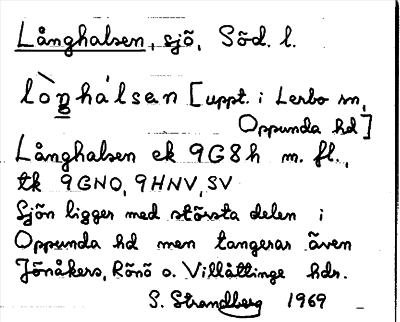 Långhalsen, sjö, Söd. l.
lòŋhálsen [uppt. i Lerbo sn,
Oppunda hd]
Långhalsen ek 9G8h m. fl.,
tk 9GNO, 9HNV, SV
Sjön ligger med största delen i
Oppunda hd men tangerar även
Jönåkers, Rönö o. Villåttinge hdr.
S. Strandberg 1969